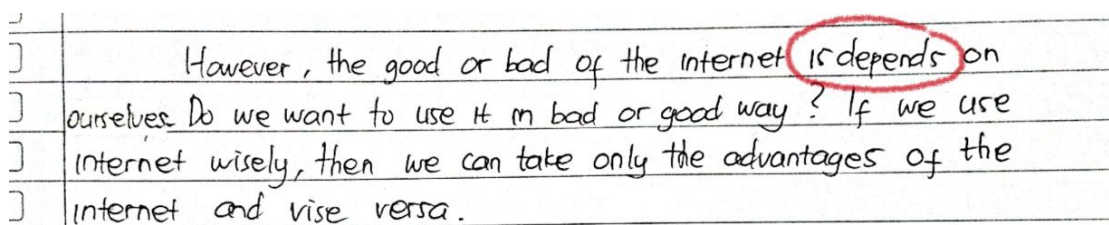 However, the good or bad of the internet is depends on
ourselves. Do we want to use it in bad or good way? If we use
internet wisely, then we can take only the advantages of the
internet and vise versa.